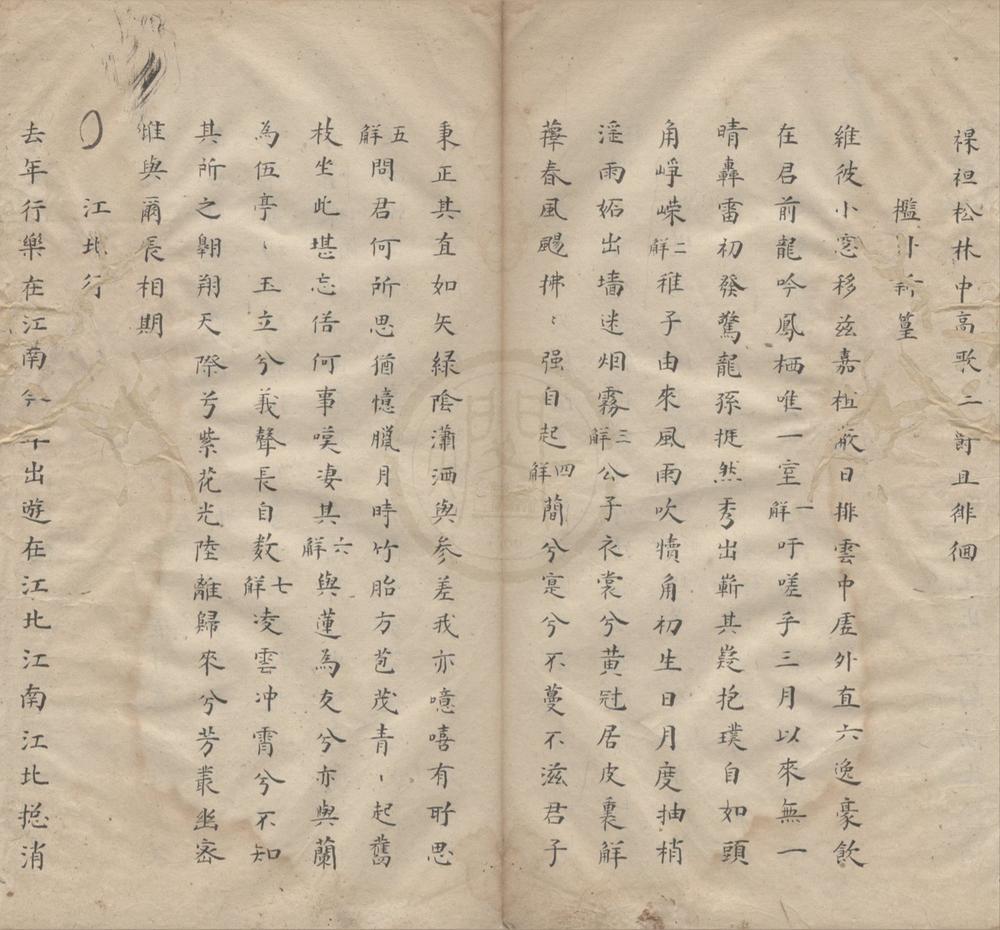 裸袒松林中高歌二闋且徘徊
檻外新篁
維彼小窓移兹嘉植蔽日排雲中虛外直六逸豪飲
在君前龍吟鳳栖唯一室一解吁嗟乎三月以來無一
晴轟雷初發驚龍孫挺然秀出嶄其嶷抱璞自如頭
角崢嶸二解稚子由來風雨吹犢角初生日月度抽梢
滛雨妬出墻迷烟霧三解公子衣裳兮黄冠居皮裏解
籜春風颺拂〻强自起四解蕳兮寔兮不蔓不滋君子
秉正其直如矢緑陰瀟洒與参差我亦噫嘻有所思
五解問君何所思猶憶臘月時竹胎方苞茂青〻起舊
枝坐此堪忘俗何事嘆凄其六解與蓮為友兮亦與蘭
為伍亭〻玉立兮義聲長自數七解凌雲冲霄兮不知
其所之翱翔天際兮紫花光陸離歸來兮芳叢幽客
惟與爾長相期
江北行
去年行樂在江南今年出遊在江北江南江北捴消